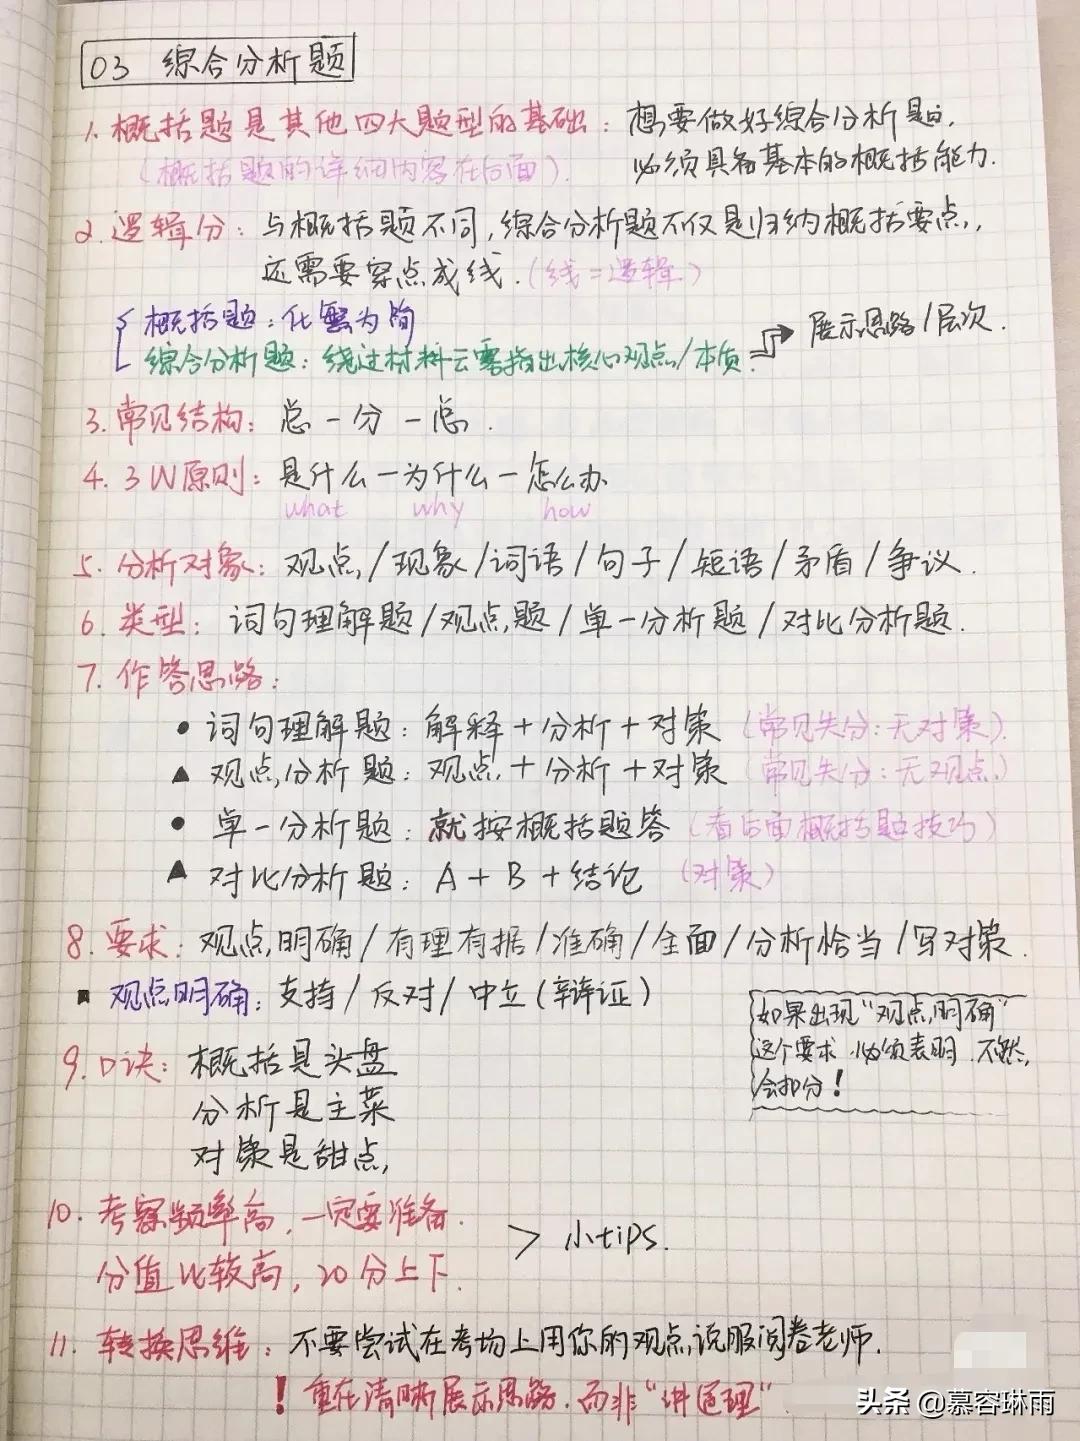 03 综合分析题
1. 概括题是其他四大题型的基础：想要做好综合分析题，
（概括题的详细内容在后面）. 必须具备基本的概括能力.
2. 逻辑分：与概括题不同，综合分析题不仅是归纳概括要点，
还需要穿点成线.（线＝逻辑.）
概括题：化繁为简
综合分析题：绕过材料云雾指出核心观点/本质. → 展示思路/层次.
3. 常见结构：总－分－总.
4. 3W原则：是什么－为什么－怎么办
what why how
5. 分析对象：观点/现象/词语/句子/短语/矛盾/争议.
6. 类型：词句理解题/观点题/单一分析题/对比分析题.
7. 作答思路：
● 词句理解题：解释＋分析＋对策（常见失分：无对策）.
▲ 观点分析题：观点＋分析＋对策（常见失分：无观点）
● 单一分析题：就按概括题答（看后面概括题技巧）
▲ 对比分析题：A＋B＋结论（对策）
8. 要求：观点明确/有理有据/准确/全面/分析恰当/写对策.
■ 观点明确：支持/反对/中立（辩证）
如果出现“观点明确”
这个要求.必须表明.不然，
会扣分！
9. 口诀：概括是头盘
分析是主菜
对策是甜点，
10. 考察频率高，一定要准备.
分值比较高，20分上下.
> 小tips.
11. 转换思维：不要尝试在考场上用你的观点说服阅卷老师.
！重在清晰展示思路.而非“讲道理”
头条 @慕容琳雨